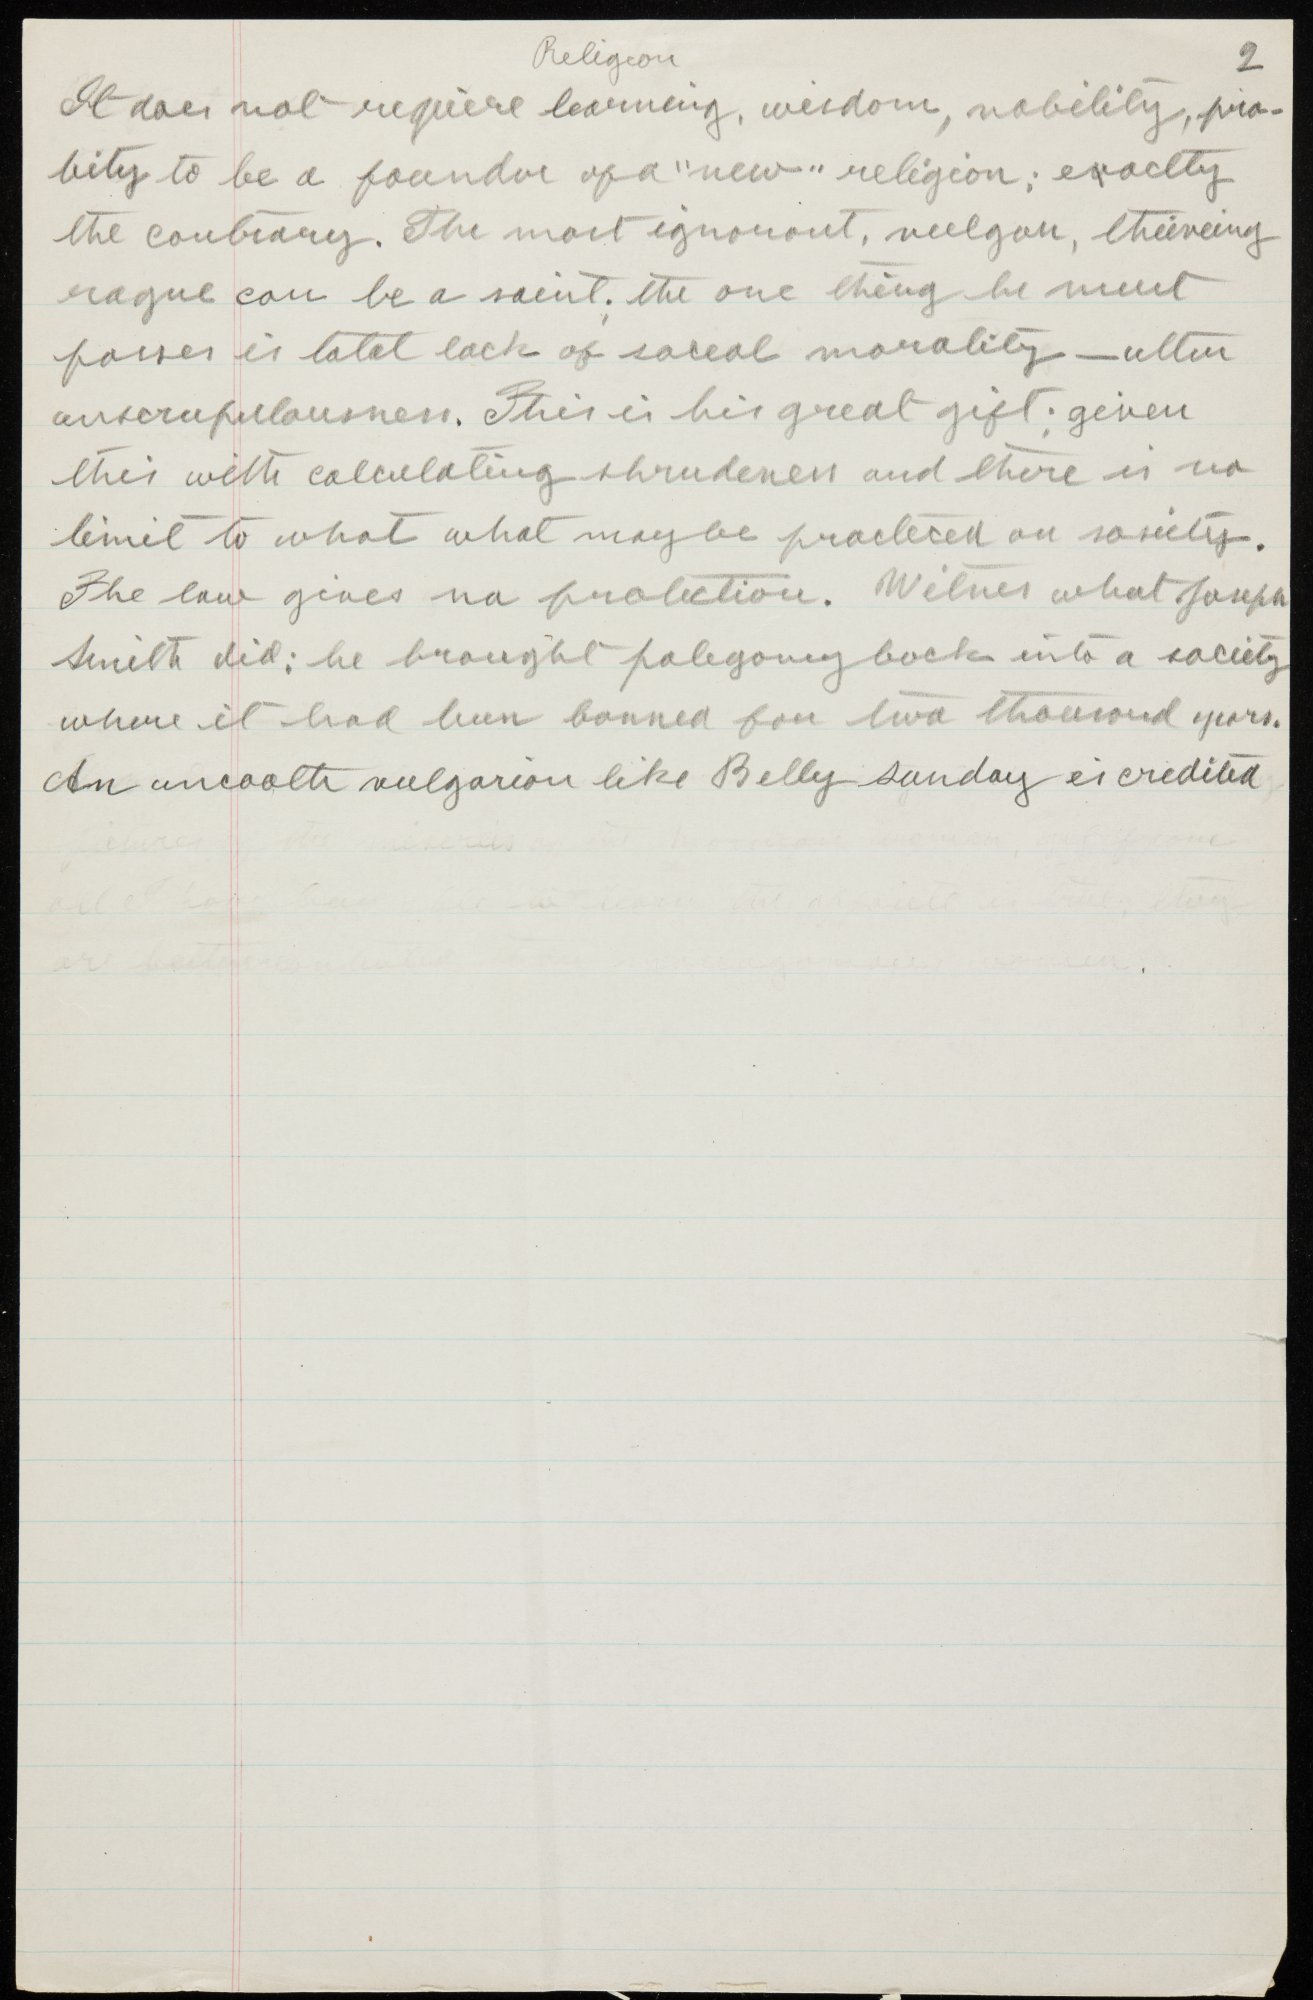 Religion
2
It does not requiere learning, wisdom, nobility, pro-
bity to be a foundor of a "new" religion; exactly
the contrary. The most ignorant, vulgar, thieveing
rogue can be a saint; the one thing he must
posses is total lack of social morality — utter
unscrupulousness. This is his great gift; given
this with calculating shrudeness and there is no
limit to what what may be practiced on society.
The law gives no protection. Witnes what Joseph
Smith did; he brought polegomy back into a society
where it had been banned for two thousand years.
An uncooth vulgarion like Billy Sunday is credited
of the miseries of the woman,
all I have the opposite is true, they
are women.